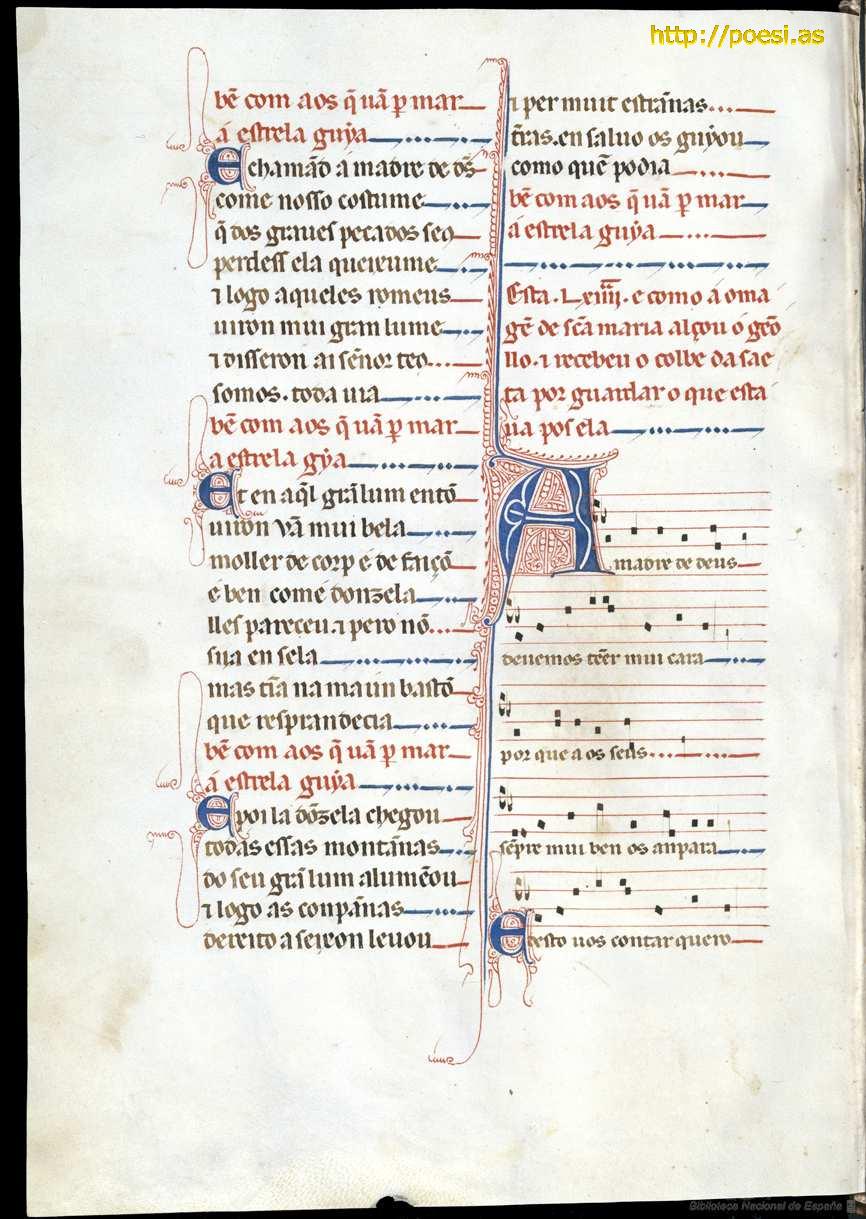 http://poesi.as
bẽ com aos q̃ uã p̱ mar
a estrela guỹa
E chamãd a madre de d̃s
come nosso costume
q̃ dos graues pecados seo
perdess ela queixume
⁊ logo aqueles romeus
uiron mui gran lume
⁊ disseron ai sẽnor teo
somos. toda uia
bẽ com aos q̃ uã p̱ mar
a estrela gỹa
Et en aq̃l grã lum entõ
uiron vã mui bela
moller de corp e de fayçõ
e ben come donzela
lles pareceu. ⁊ pero nõ
sua en sela
mas tĩa na ma un bastõ
que resprandecia
bẽ com aos q̃ uã p̱ mar
a estrela guỹa
E poi la dõzela chegou
todas essas montãnas
do seu grã lum alumẽou
⁊ logo as conpãnas
dereito a seixon leuou
⁊ per muit estrãnas
t̃ras. en saluo os guyou
como quẽ podia
bẽ com aos q̃ uã p̱ mar
a estrela guỹa
Esta .Lxiiii. e como a oma
gẽ de sc̃a maria alçou o geõ
llo. ⁊ recebeu o colbe da sae
ta por guardar o que esta
ua pos ela
A madre de deus
deuemos tẽer mui cara
por que a os seus
sẽpre mui ben os anpara
E desto uos contar quero
Biblioteca Nacional de España